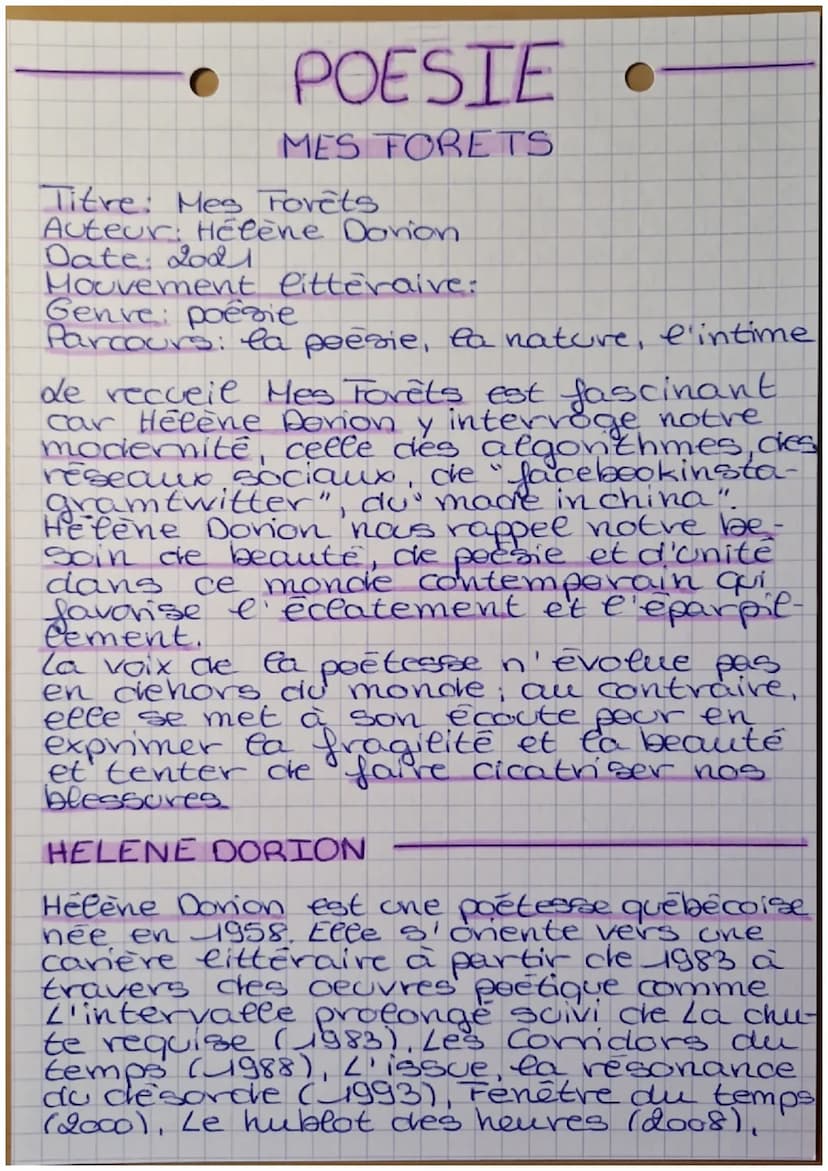 POESIE
MES FORETS
Titre: Mes Forêts
Auteur: Hélène Dorion
Date: 2021
Mouvement littéraire:
Genre: poésie
Parcours: la poésie, la nature, l'intime
de recueil Mes Forêts est fascinant
car Hélène Dorion y interroge notre
modernité, celle des algorithmes, des
réseaux sociaux, de "facebookinsta-
gramtwitter", du "made in china".
Hélène Dorion nous rappel notre be-
soin de beauté, de poésie et d'unité
dans ce monde contemporain qui
favorise l'éclatement et l'éparpil-
lement.
La voix de la poétesse n'évolue pas
en dehors du monde; au contraire,
elle se met à son écoute pour en
exprimer la fragilité et la beauté
et tenter de faire cicatriser nos
blessures
HELENE DORION
Hélène Dorion est une poétesse québécoise
née en 1958. Elle s'oriente vers une
carière littéraire à partir de 1983 à
travers des oeuvres poétique comme
L'intervalle prolongé suivi de La chu-
te requise (1983), Les Corridors du
temps (1988), L'issue, la résonance
du désorde (1993), Fenêtre du temps
(2000), Le hublot des heures (2008),